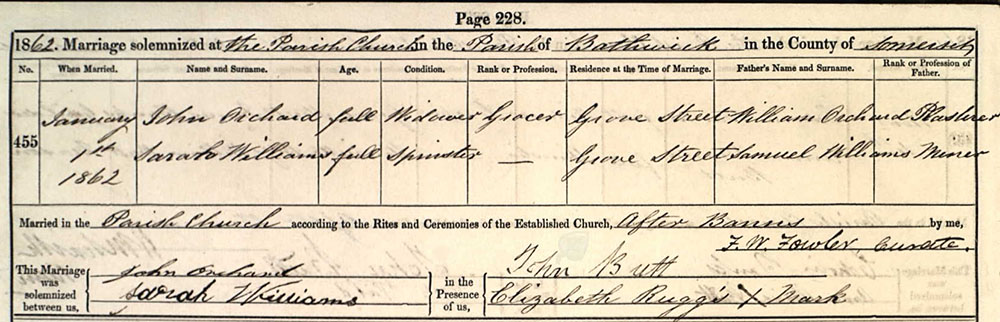 Page 228.
1862. Marriage solemnized at the Parish Church in the Parish of Bathwick in the County of Somerset
No. When Married. Name and Surname. Age. Condition. Rank or Profession. Residence at the Time of Marriage. Father's Name and Surname. Rank or Profession of Father.
January John Orchard full Widower Grocer Grove Street William Orchard Plasterer
455
1st Sarah Williams full Spinster — Grove Street Samuel Williams Miner
1862
Married in the Parish Church according to the Rites and Ceremonies of the Established Church, After Banns by me,
F. W. Fowler Curate.
This Marriage was solemnized between us, John Orchard in the Presence of us, John Butt
Sarah Williams Elizabeth Ruggs X Mark